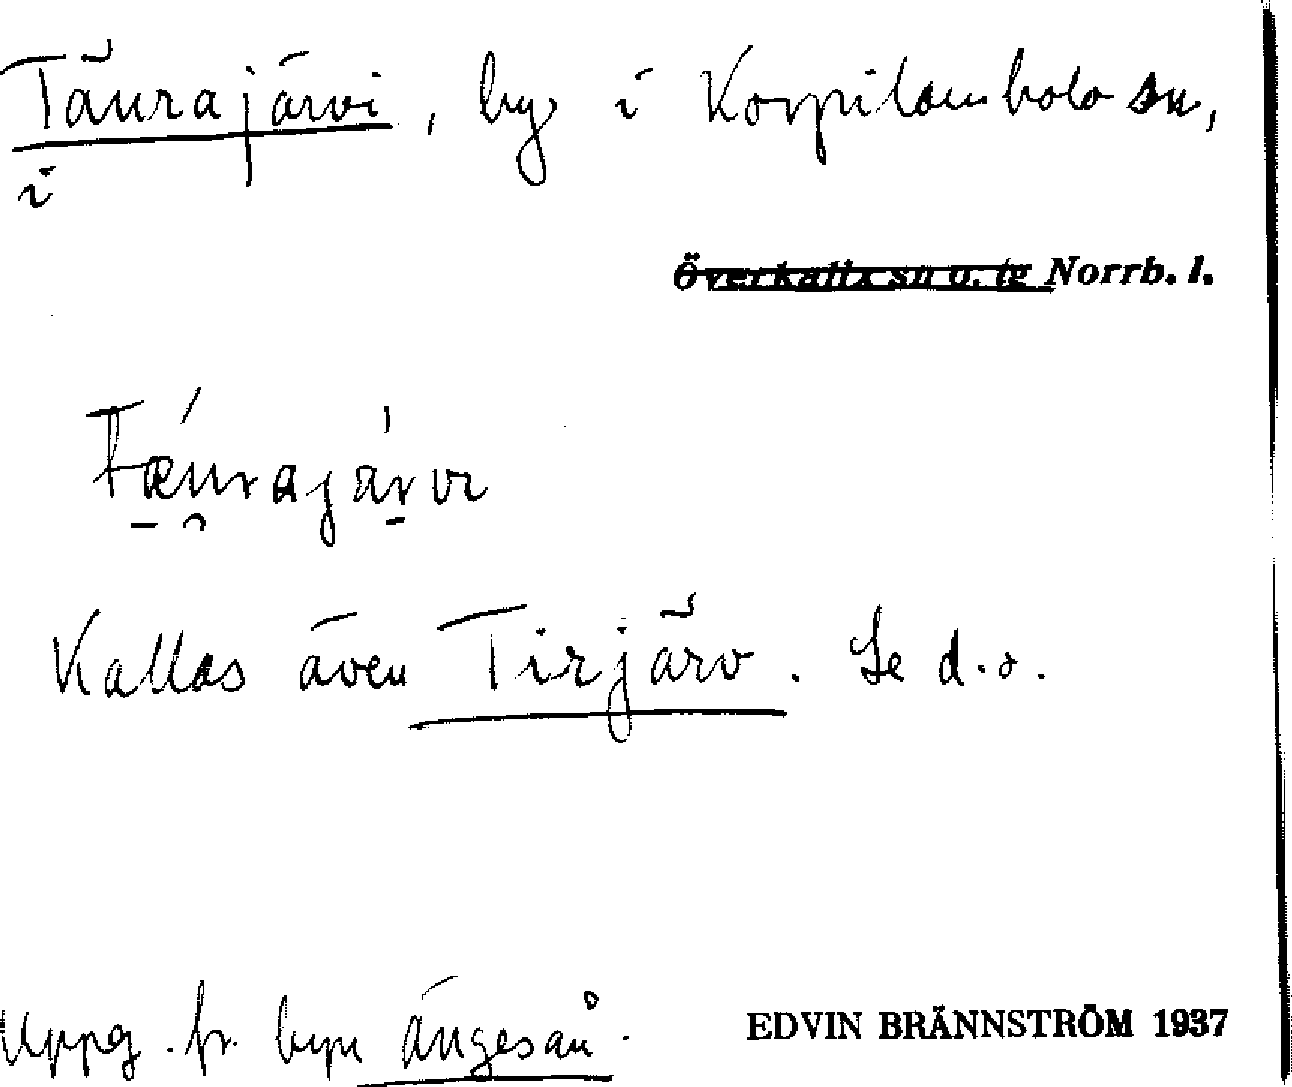 Täurajärvi, by i Korpilombolo sn,
i
Överkalix sn o. tg Norrb. l.
Tæu̯rajárvi
Kallas även Tirjärv. Se d.o.
Uppg. fr. byn Ängesån.
EDVIN BRÄNNSTRÖM 1937